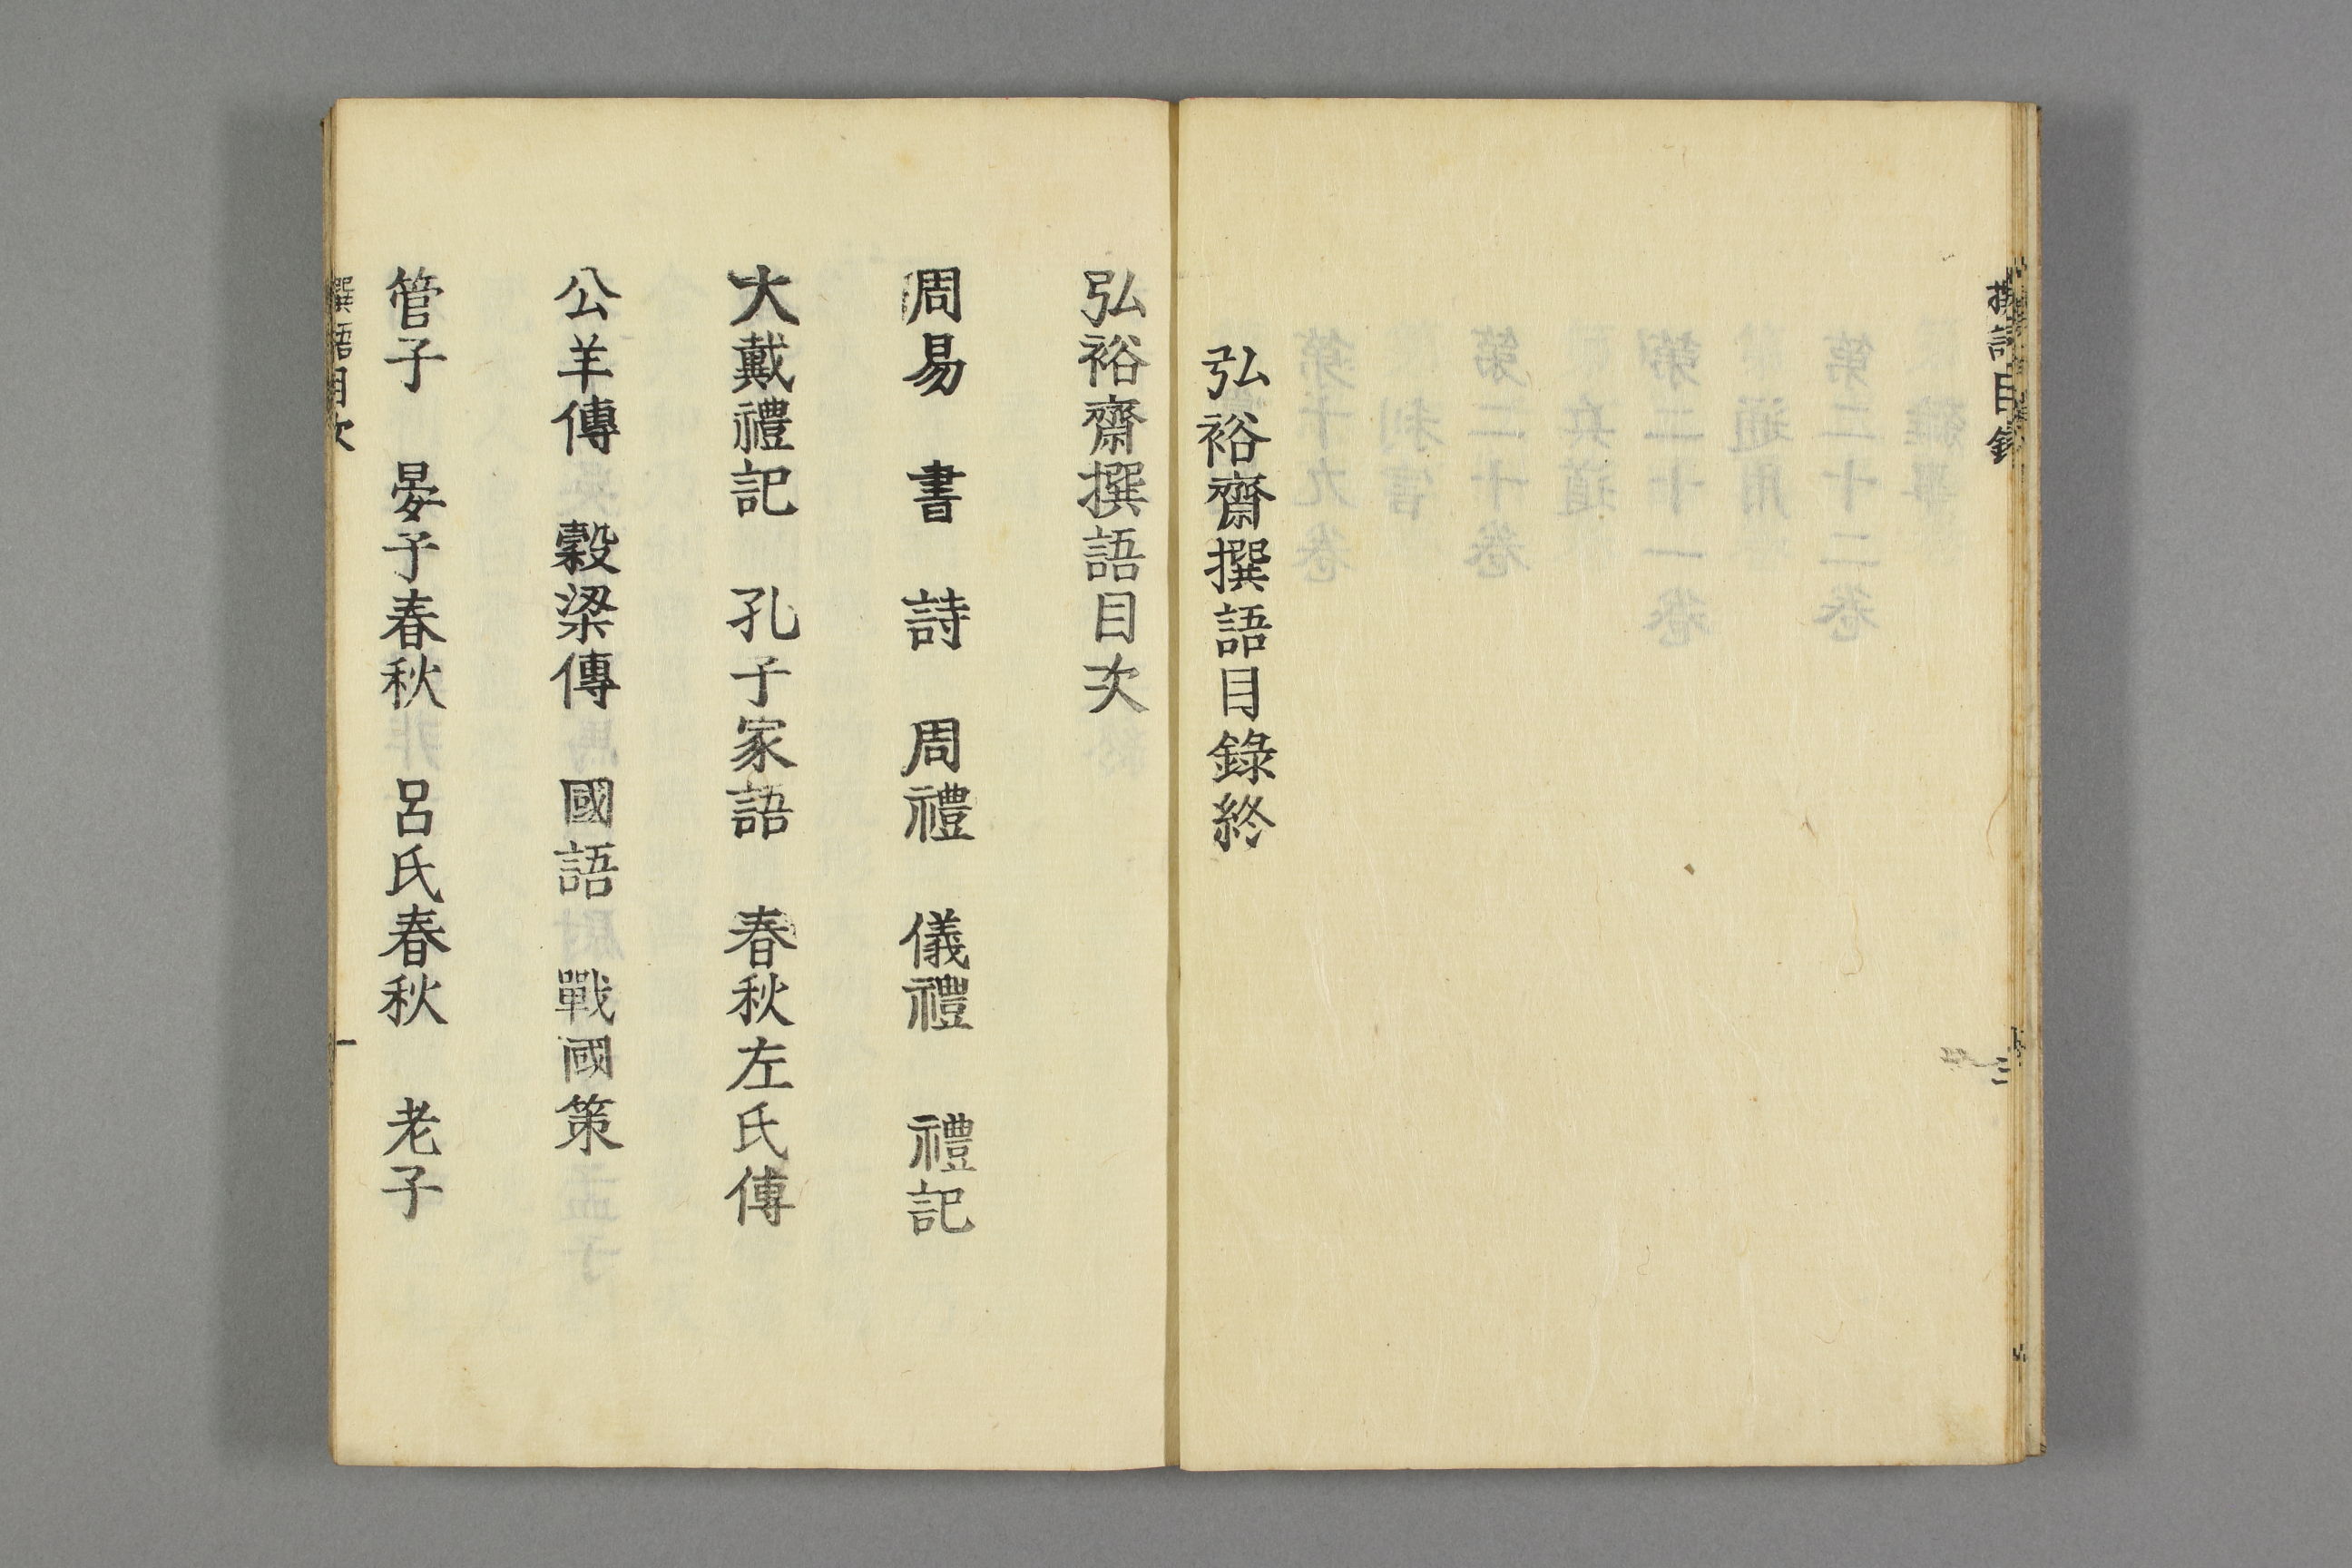 弘裕齋撰語目錄終
弘裕齋撰語目次
周易　書　詩　周禮　儀禮　禮記
大戴禮記　孔子家語　春秋左氏傳
公羊傳　穀梁傳　國語　戰國策
管子　晏子春秋　呂氏春秋　老子
撰語目次
一